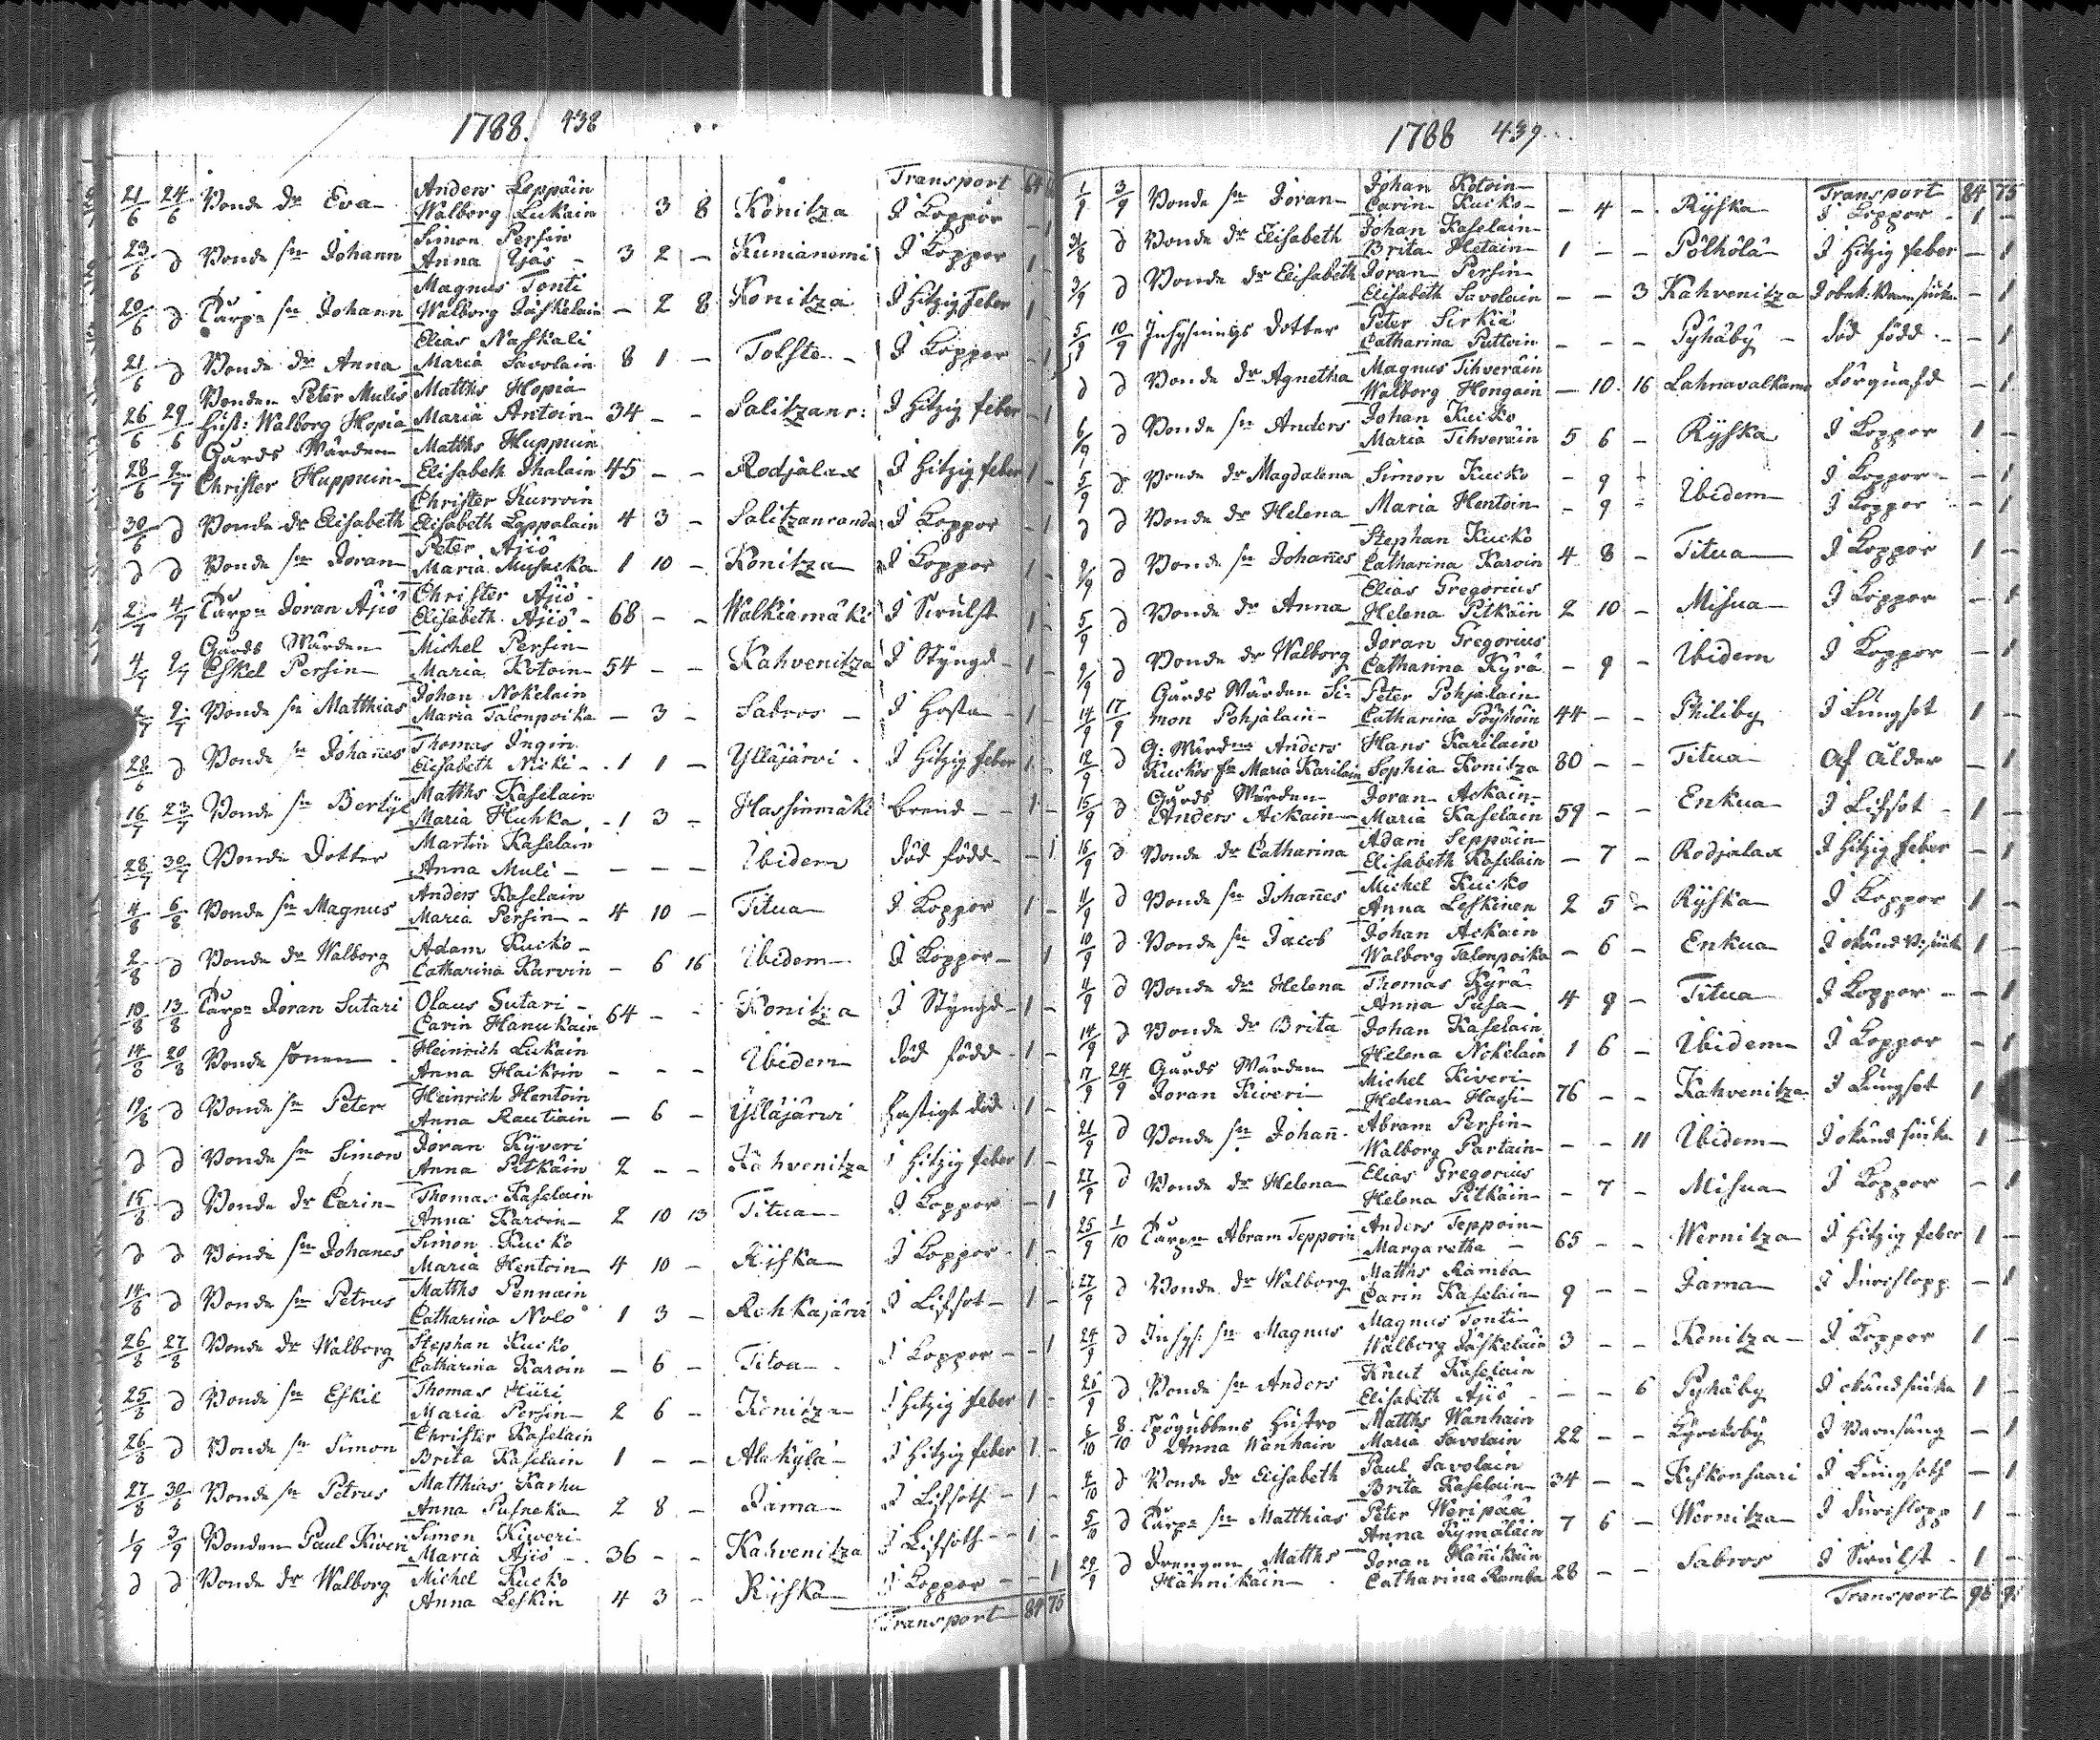 1788. 438
Transport 64
21/6 24/6 Bonde dr Eva Anders Loppöin
Walborg Lukain 3 8 Konitza I Koppor - 1
23/6 d Bonde sn Johann Simon Persin
Anna Ijäs 3 2 - Kunianemi I Koppor 1 -
20/6 d Torpe sn Johann Magnus Tonti
Walborg Jäskelain - 2 8 Konitza I Hitzig feber 1 -
21/6 d Bonde dr Anna Elias Naskali
Maria Savolain 8 1 - Tolste I Koppor - 1
26/6 29/6 Bonden Peter Mulis Matths Hopia
Hust: Walborg Hopia Maria Antoin 34 - - Salitzanr: I Hitzig feber - 1
Gårds Wärden Matths Huppuin
28/6 2/7 Christer Huppuin Elisabeth Ihalain 45 - - Rodjalax I Hitzig feber 1 -
30/6 d Bonde dr Elisabeth Christer Kurvoin
Elisabeth Lappalain 4 3 - Salitzanranda I Koppor - 1
d d Bonde sn Joran Peter Ajiö
Maria Musacka 1 10 - Konitza I Koppor 1 -
2/7 4/7 Torpn Joran Ajiö Christer Ajiö
Elisabeth Ajiö 68 - - Walkiamäki I Swulst 1 -
Gårds Wärden Michel Persin
4/7 9/7 Eskel Persin Maria Kotoin 54 - - Kahvenitza I Styngd 1 -
9/7 Bonde sn Matthias Johan Nokelain
Maria Talonpoika - 3 - Sabros I Hosta 1 -
28/6 d Bonde sn Johañes Thomas Ingin
Elisabeth Nicki 1 1 - Ylläjärvi I Hitzig feber 1 -
16/7 23/7 Bonde sn Bertil Matths Kaselain
Maria Huhka 1 3 - Hassinmäki brend 1 -
28/7 30/7 Bonde Dotter Martin Kaselain
Anna Muli - - - Ibidem död född - 1
4/8 6/8 Bonde sn Magnus Anders Kaselain
Maria Persin 4 10 - Titua I Koppor 1 -
2/8 d Bonde dr Walborg Adam Kucko
Catharina Karvin - 6 16 Ibidem I Koppor - 1
10/8 13/8 Torpn Joran Sutari Olaus Sutari
Carin Hanukain 64 - - Konitza I Styngd 1 -
14/8 20/8 Bonde sonen Heinrich Lukain
Anna Haikoin - - - Ibidem död född 1 -
19/8 d Bonde sn Peter Heinrich Hentoin
Anna Rautiain - 6 - Ylläjärwi hastigt död 1 -
d d Bonde sn Simon Joran Kyveri
Anna Pitkäin 2 - - Kahvenitza I Hitzig feber 1 -
15/8 d Bonde dr Carin Thomas Kaselain
Anna Karvin 2 10 13 Titua I Koppor - 1
d d Bonde sn Johanes Simon Kucko
Maria Hentoin 4 10 - Ryska I Koppor 1 -
14/8 d Bonde sn Petrus Matths Pennain
Catharina Nolo 1 3 - Rohkajärvi I Lifsot 1 -
26/8 27/8 Bonde dr Walborg Stephan Kucko
Catharina Karoin - 6 - Titoa I Koppor - 1
25/8 d Bonde sn Eskil Thomas Hüri
Maria Persin 2 6 - Konitza I Hitzig feber 1 -
26/8 d Bonde sn Simon Christer Kaselain
Brita Kaselain 1 - - Alakylä I Hitzig feber 1 -
27/8 30/8 Bonde sn Petrus Matthias Karhu
Anna Pusneka 2 8 - Jarna I Lifsoth 1 -
1/9 3/9 Bonden Paul Kiveri Simon Kiweri
Maria Ajiö 36 - - Kahvenitza I Lifsoth 1 -
d d Bonde dr Walborg Michel Kucko
Anna Leskin 4 3 - Ryska I Koppor - 1
Transport 84 75
1788 439
Transport 84 75
1/9 3/9 Bonde sn Joran Johan Kotoin
Carin Kucko - 4 - Ryska I Koppor 1 -
31/8 d Bonde dr Elisabeth Johan Kaselain
Brita Hetain 1 - - Pölhölä I Hitzig feber - 1
3/9 d Bonde dr Elisabeth Joran Persin
Elisabeth Savolain - - 3 Kahvenitza I obek: Barnsiuka - 1
5/9 10/9 Inhysnings Dotter Peter Sirkiä
Catharina Puttoin - - - Pyhäby död född - 1
d d Bonde dr Agnetha Magnus Tihveräin
Walborg Hongain - 10 16 Lahnavalkama förquafd - 1
6/9 d Bonde sn Anders Johan Kucko
Maria Tihveräin 5 6 - Ryska I Koppor 1 -
5/9 d Bonde dr Magdalena Simon Kucko - 9 - Ibidem I Koppor - 1
d d Bonde dr Helena Maria Hentoin - 9 - I Koppor - 1
9/9 d Bonde sn Johañes Stephan Kucko
Catharina Karoin 4 8 - Titua I Koppor 1 -
5/9 d Bonde dr Anna Elias Gregorius
Helena Pitkäin 2 10 - Misua I Koppor - 1
9/9 d Bonde dr Walborg Joran Gregorius
Catharina Kyrä - 9 - Ibidem I Koppor - 1
Gårds Wärden Si= Peter Pohjalain
14/9 17/9 mon Pohjalain Catharina Pöyhöin 44 - - Philiby I Lungsot 1 -
12/9 d G: Wärdns Anders Hans Karilain
Kuckos fr Maria Karilain Sophia Konitza 80 - - Titua Af ålder - 1
15/9 d Gårds Wärden Joran Ackain
Anders Ackain Maria Kaselain 59 - - Enkua I Lifsot 1 -
16/9 d Bonde dr Catharina Adam Seppäin
Elisabeth Kaselain - 7 - Rodjalax I Hitzig feber - 1
11/9 d Bonde sn Johañes Michel Kucko
Anna Leskinen 2 5 - Ryska I Koppor 1 -
10/9 d Bonde sn Jacob Johan Ackain
Walborg Talonpoika - 6 - Enkua I okänd B:siuka 1 -
11/9 d Bonde dr Helena Thomas Kyrä
Anna Pusa 4 9 - Titua I Koppor - 1
14/9 d Bonde dr Brita Johan Kaselain
Helena Nokelain 1 6 - Ibidem I Koppor - 1
17/9 24/9 Gårds Wärden Michel Kiveri
Joran Kiveri Helena Hassi 76 - - Kahvenitza I Lungsot 1
21/9 d Bonde sn Johañ Abram Persin
Walborg Partain - - 11 Ibidem I okänd siuka 1 -
27/9 d Bonde dr Helena Elias Gregorius
Helena Pitkain - 7 - Misua I Koppor - 1
25/9 1/10 Torpn Abram Teppoin Anders Teppoin
Margaretha 65 - - Wernitza I Hitzig feber 1 -
27/9 d Bonde dr Walborg Matths Ramba
Carin Kaselain 9 - - Jarna I durchlopp - 1
24/9 d Inhys: sn Magnus Magnus Tonti
Walborg Jäskelain 3 - - Konitza I Koppor 1 -
26/9 d Bonde sn Anders Knut Kaselain
Elisabeth Ajiö - - 6 Pyhäby I okänd siuka 1 -
6/10 8/10 Spögubbens Hustro Matths Wanhain
Anna Wanhain Maria Savolain 22 - - Kyreksby I Barnsäng - 1
4/10 d Bonde dr Elisabeth Paul Savolain
Brita Kaselain 34 - - Keskonsaari I Lungsoth - 1
5/10 d Torpe sn Matthias Peter Weripää
Anna Kymäläin 7 6 - Wernitza I durchlopp 1 -
29/9 d Drengen Matths Joran Hänikäin
Hähnikäin Catharina Ramba 28 - - Sabros I Swulst 1 -
Transport 98